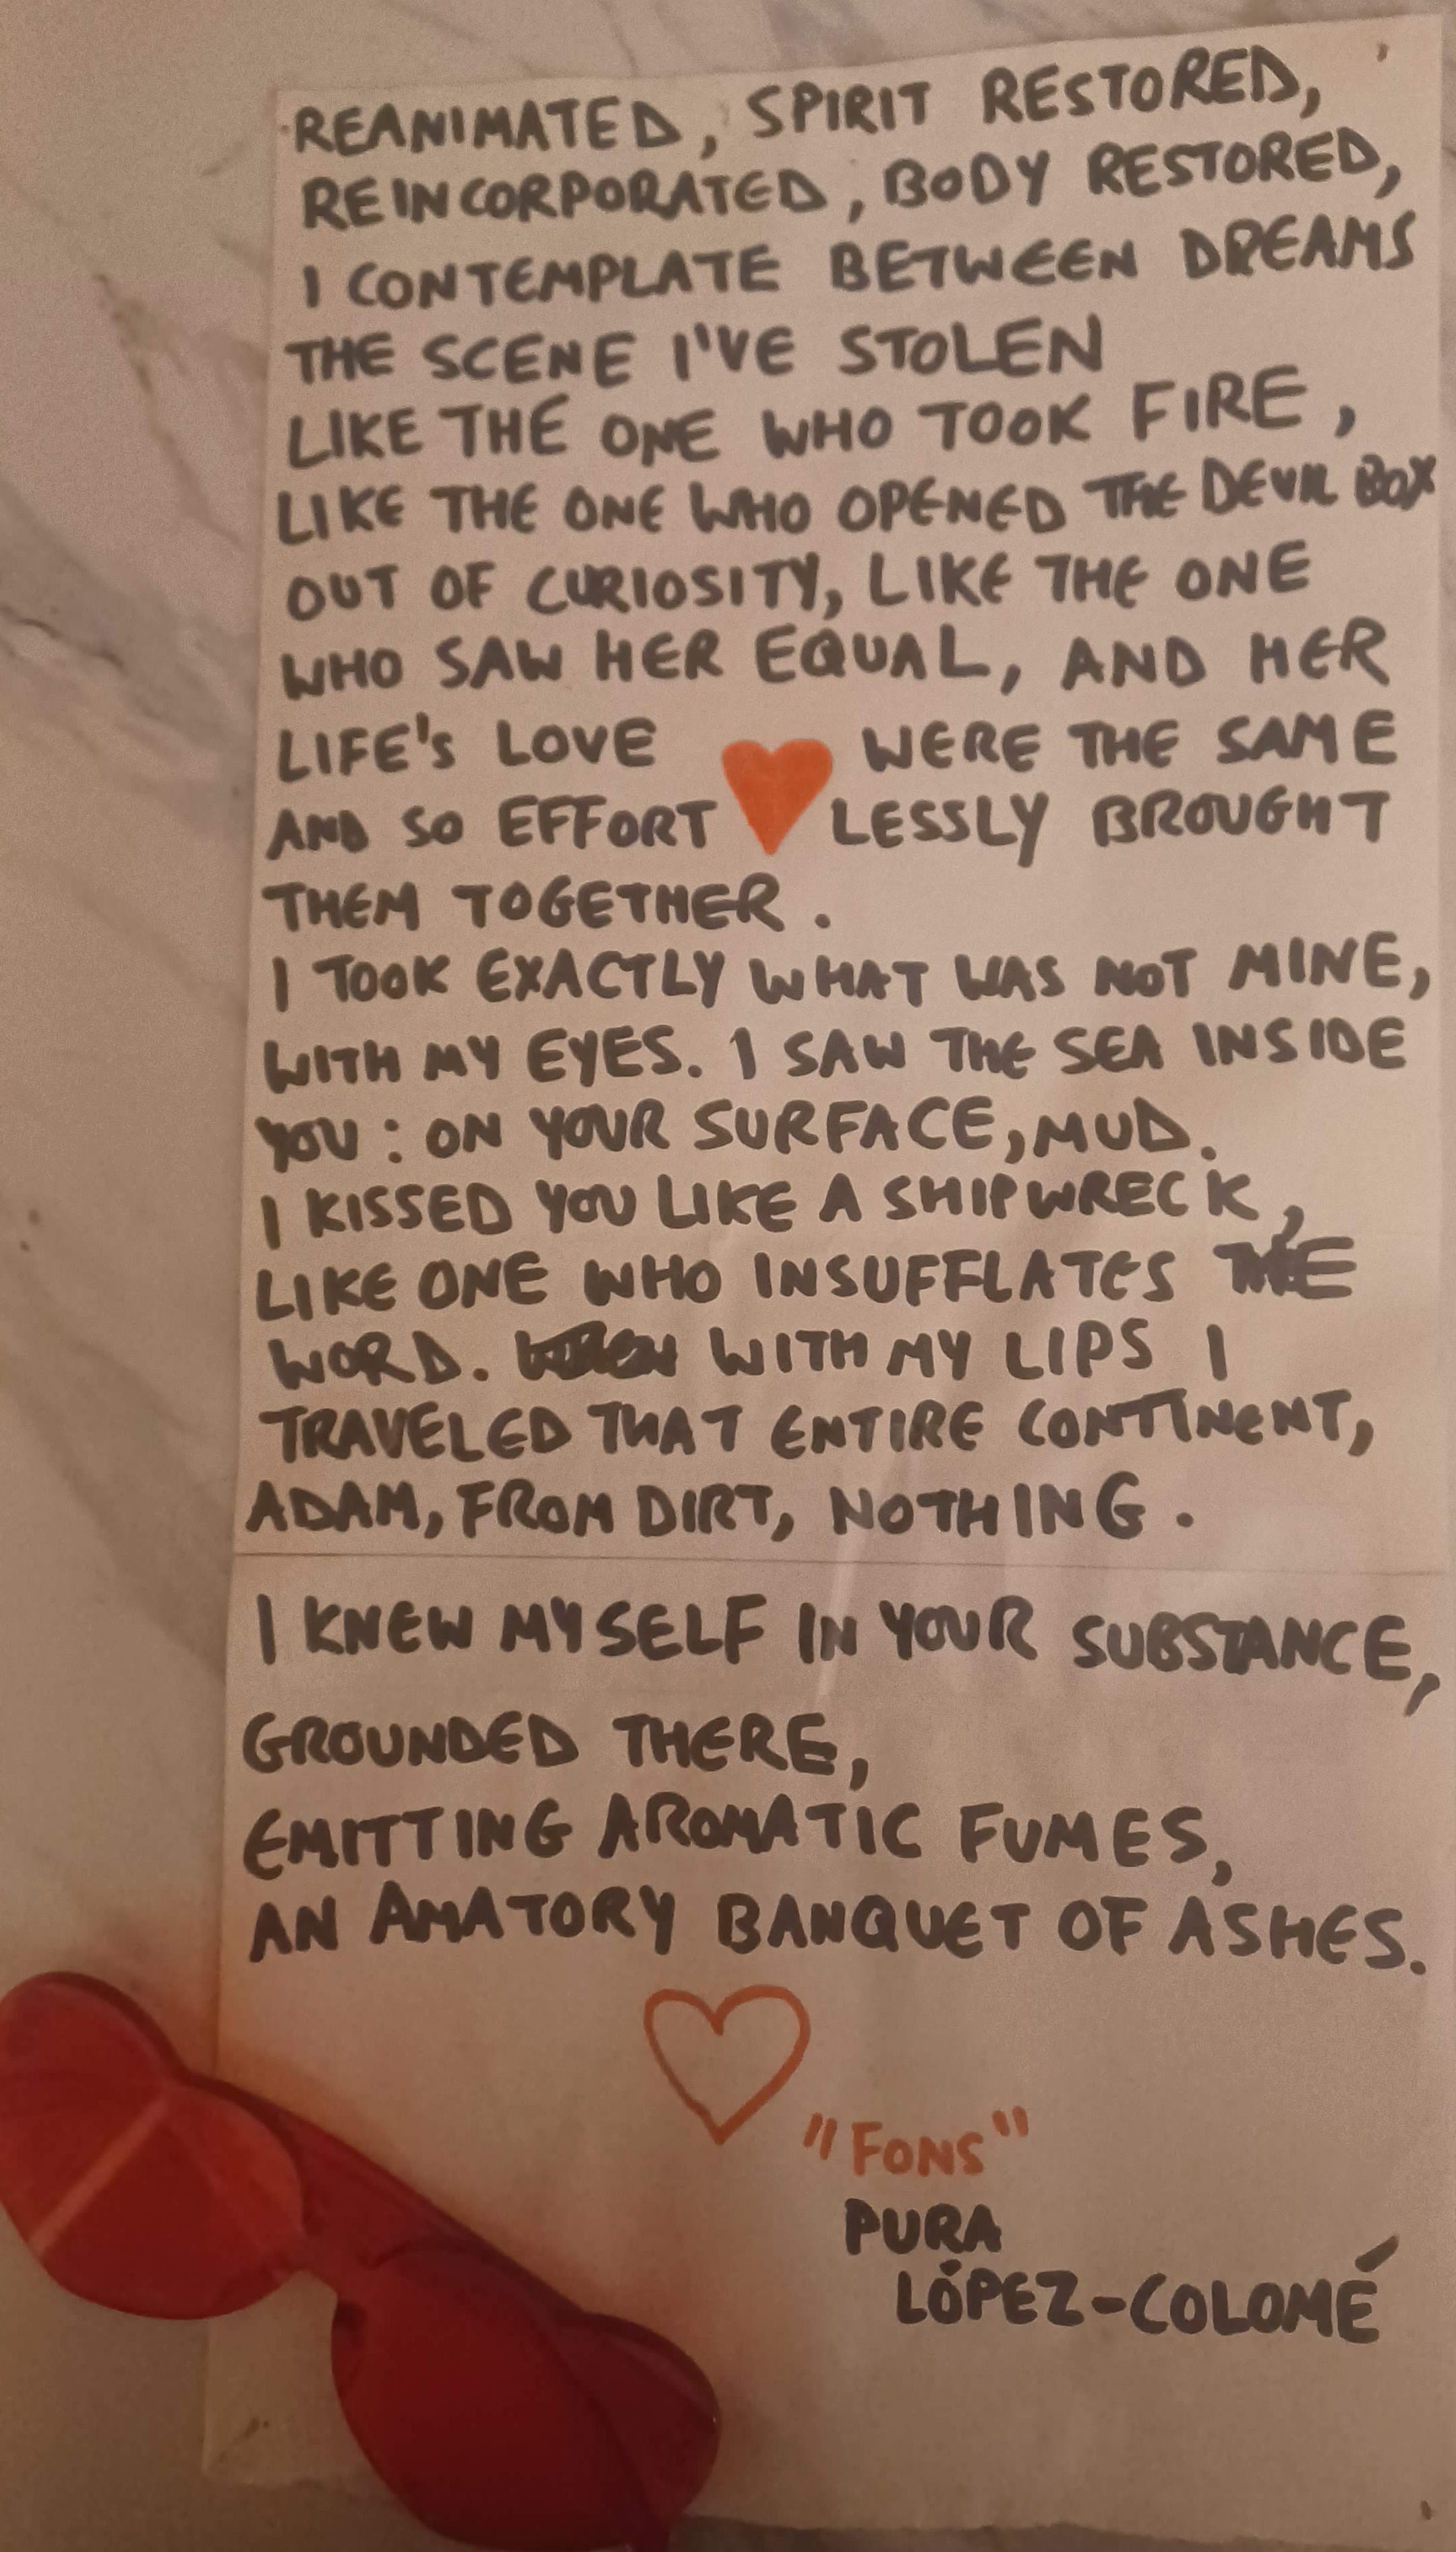 REANIMATED, SPIRIT RESTORED,
REINCORPORATED, BODY RESTORED,
I CONTEMPLATE BETWEEN DREAMS
THE SCENE I'VE STOLEN
LIKE THE ONE WHO TOOK FIRE,
LIKE THE ONE WHO OPENED THE DEVIL BOX
OUT OF CURIOSITY, LIKE THE ONE
WHO SAW HER EQUAL, AND HER
LIFE'S LOVE WERE THE SAME
AND SO EFFORTLESSLY BROUGHT
THEM TOGETHER.
I TOOK EXACTLY WHAT WAS NOT MINE,
WITH MY EYES. I SAW THE SEA INSIDE
YOU: ON YOUR SURFACE, MUD.
I KISSED YOU LIKE A SHIPWRECK,
LIKE ONE WHO INSUFFLATES THE
WORD. WITH MY LIPS I
TRAVELED THAT ENTIRE CONTINENT,
ADAM, FROM DIRT, NOTHING.
I KNEW MYSELF IN YOUR SUBSTANCE,
GROUNDED THERE,
EMITTING AROMATIC FUMES,
AN AMATORY BANQUET OF ASHES.
"FONS"
PURA
LÓPEZ-COLOMÉ